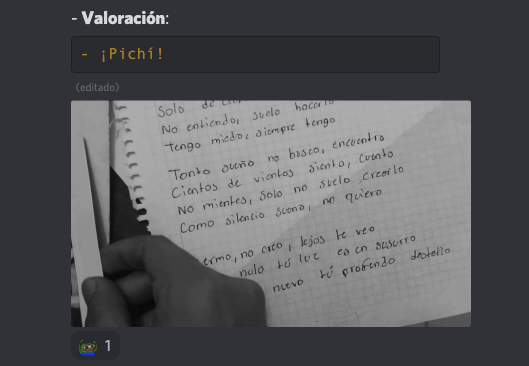 - Valoración:
- ¡Pichí!
(editado)
Solo de
No entiendo, suelo hacerlo
tengo miedo, siempre tengo
Tonto sueño no busco, encuentro
Cientos de vientos siento, cuento
No mientes, solo no suelo creerlo
Como silencio sueno, no quiero
no creo, lejos te veo
nulo tú luz es en susurro
nuevo tú profundo destello.
1